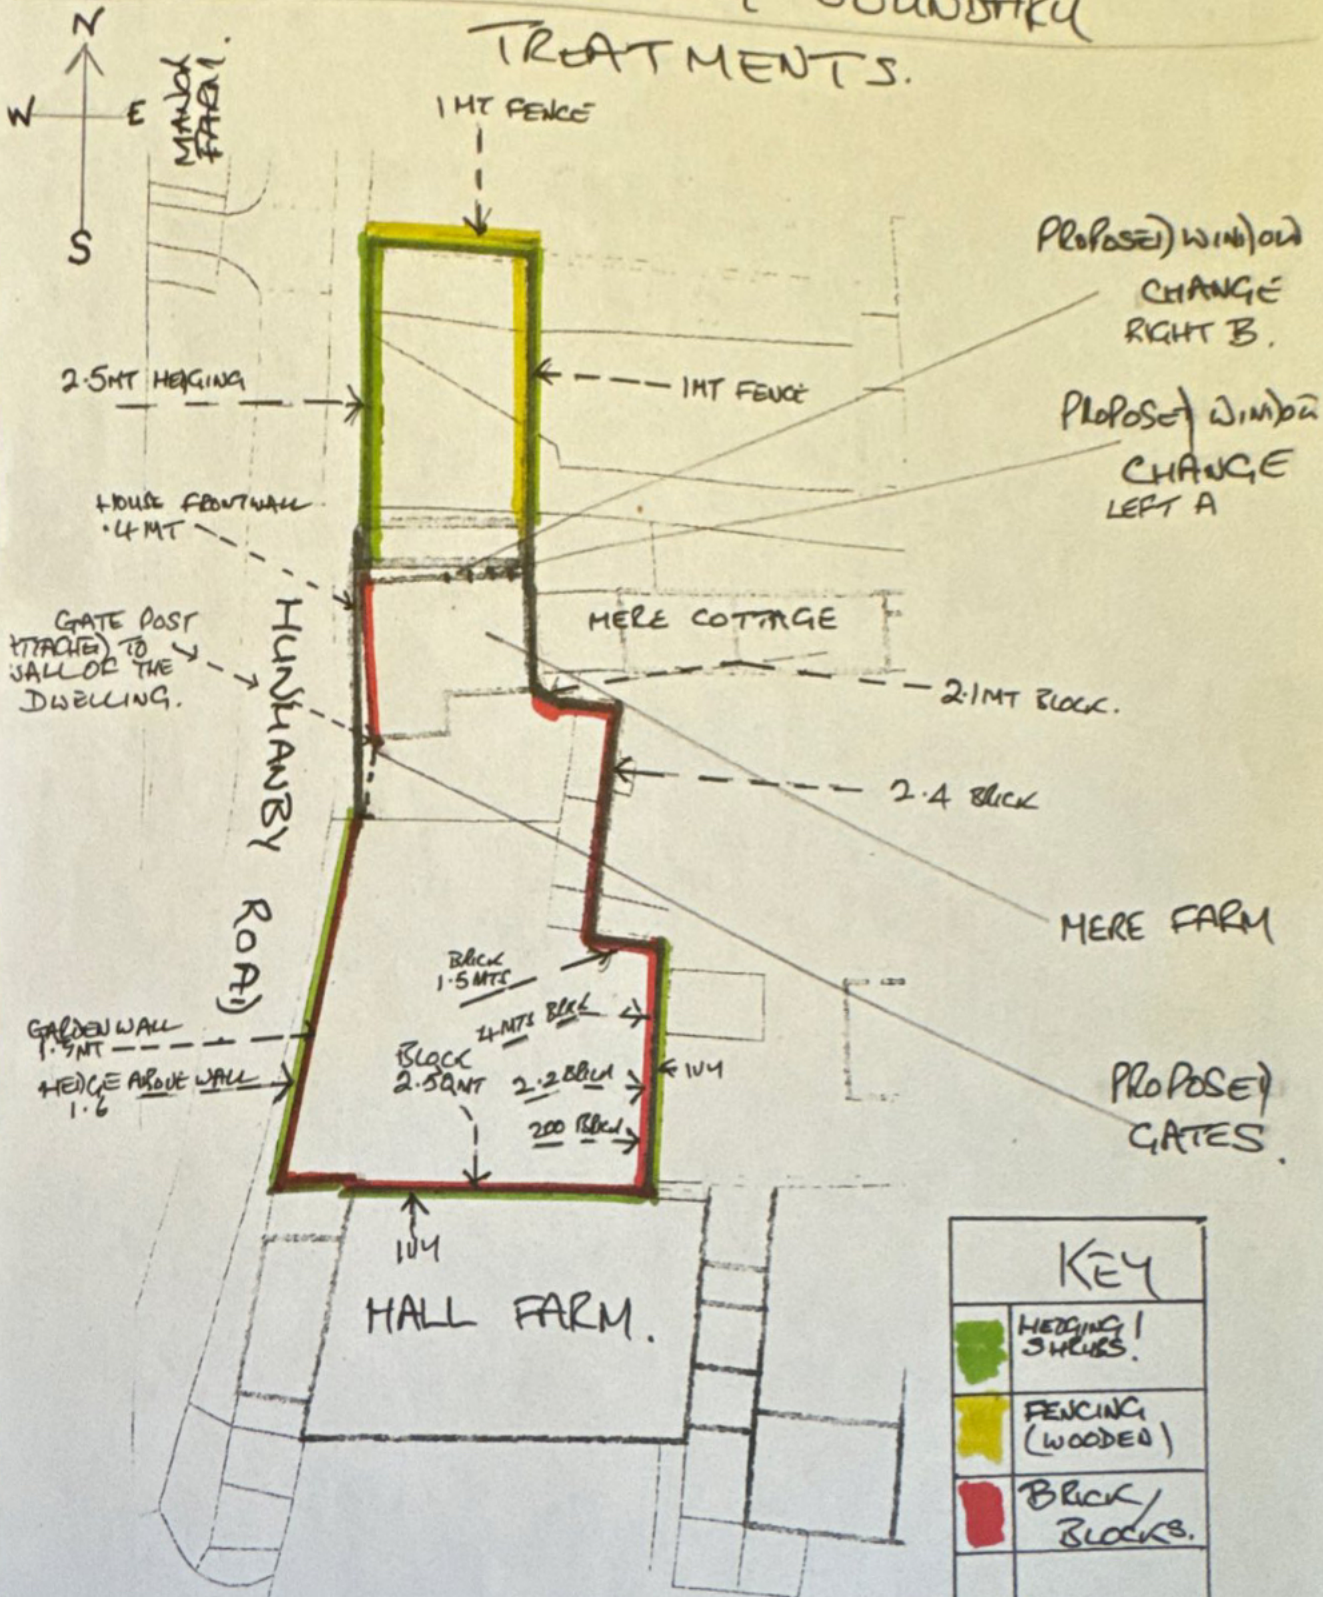 BOUNDARY
TREATMENTS.
N
W
E
S
MANOR
FARM.
1 MT FENCE
PROPOSED WINDOW
CHANGE
RIGHT B.
2.5MT HEDGING
1MT FENCE
PROPOSED WINDOW
CHANGE
LEFT A
HOUSE FRONT WALL
.4 MT
GATE POST
ATTACHED TO
WALL OF THE
DWELLING.
HUNMANBY
ROAD
MERE COTTAGE
2.1MT BLOCK.
2.4 BRICK
MERE FARM
BRICK
1.5 MTS
4 MTS BRICK
BLOCK
2.2 BRICK
200 BRICK
IVY
GARDEN WALL
HEDGE ABOVE WALL
1.6
PROPOSED
GATES.
IVY
HALL FARM.
KEY
HEDGING /
SHRUBS.
FENCING
(WOODEN)
BRICK /
BLOCKS.